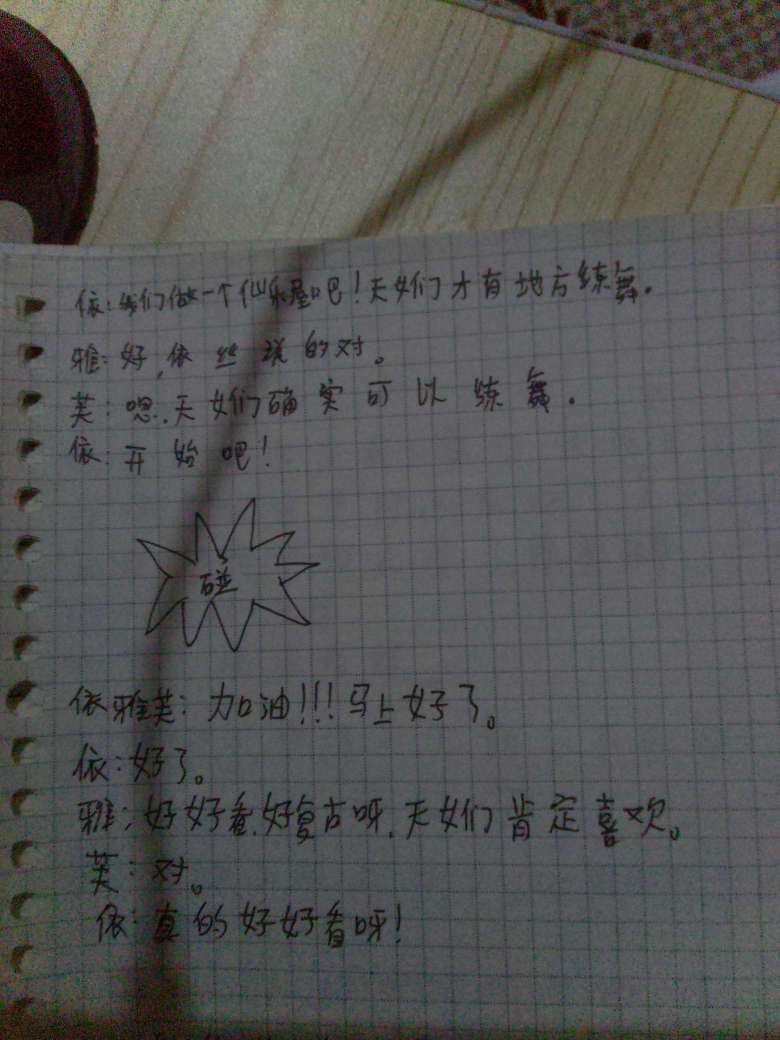 依:我们做一个仙乐屋吧!天女们才有地方练舞。
雅:好,依丝说的对。
芙:嗯,天女们确实可以练舞.
依:开始吧!
碰
依雅芙:加油!!!马上好了。
依:好了。
雅:好好看,好复古呀,天女们肯定喜欢。
芙:对。
依:真的好好看呀!